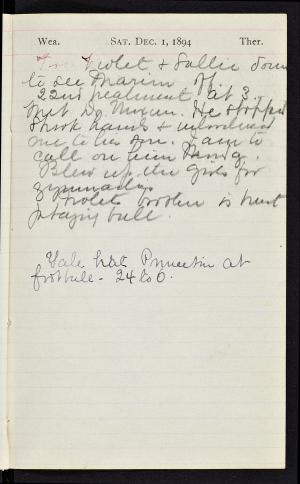 Wea. SAT. DEC. 1, 1894 Ther.
Violet & Sallie down
to see Marion off
22nd treatment at 3.
Met Dr. He stopped
shook hands & introduced
me to his son. I am to
call on him
Blew up the girls for
gymnastics
Violet's brother is hurt
playing ball.
Yale beats Princeton at
football - 24 to 0.